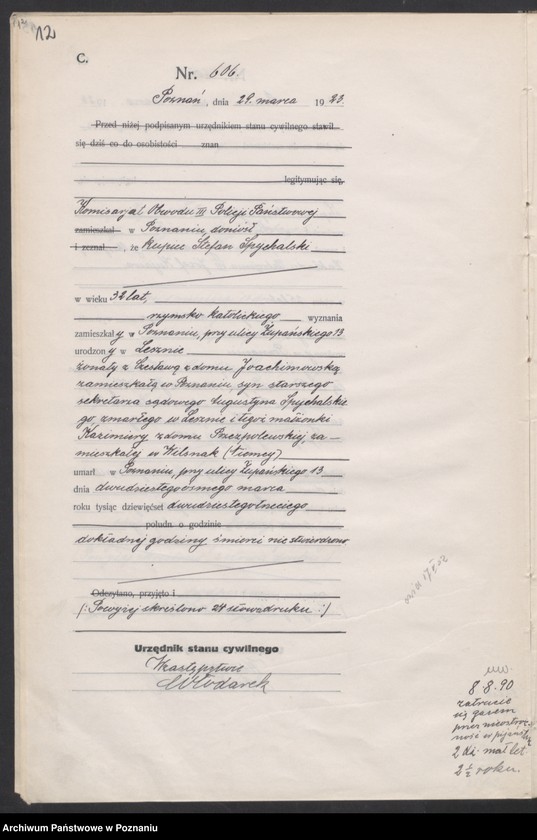 12
C.
Nr. 606.
Poznań, dnia 29. marca 1923.
Przed niżej podpisanym urzędnikiem stanu cywilnego stawił
się dziś co do osobistości znan
legitymując się,
Komisarjat Obwodu III Policji Państwowej
zamieszkał w Poznaniu, doniósł
i zeznał, że kupiec Stefan Spychalski
w wieku 32 lat,
rzymsko katolickiego wyznania
zamieszkały w Poznaniu, przy ulicy Żupańskiego 13
urodzony w Lesznie
żonaty z Czesławą z domu Joachimowską
zamieszkałą w Poznaniu syn starszego
sekretarza sądowego Augustyna Spychalskie
go zmarłego w Lesznie i tegoż małżonki
Kazimiery z domu Pszczpolewskiej za-
mieszkałej w Wilsnak (Niemcy)
umarł w Poznaniu, przy ulicy Żupańskiego 13
dnia dwudziestegoósmego marca
roku tysiąc dziewięćset dwudziestegotrzeciego
połudn. o godzinie
dokładnej godziny śmierci nie stwierdzono
Odczytano, przyjęto i
(: Powyżej skreślono 24 słowa druku :)
Urzędnik stanu cywilnego
W zastępstwie
Włodarek
8.8.90
zatrucie
się gazem
przez nieostroż
ność w pijańs
2 dz. mał let.
2 1/2 roku.
Archiwum Państwowe w Poznaniu